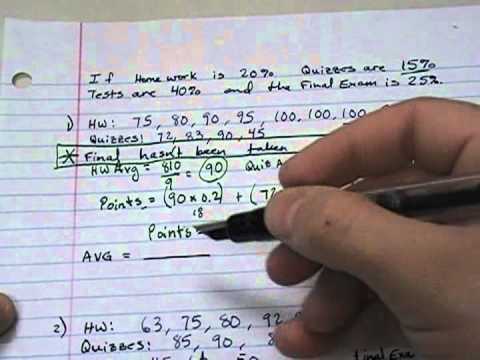 If Homework is 20% Quizzes are 15%
Tests are 40% and the Final Exam is 25%.
1) HW: 75, 80, 90, 95, 100, 100, 100,
Quizzes: 72, 83, 90, 45
* Final hasn't been taken
HW Avg = 810/9 = 90 Quiz A
Points = (90 x 0.2) + (72
18
Points
AVG =
2) HW: 63, 75, 80, 92,
Quizzes: 85, 90, 8
Final Exa